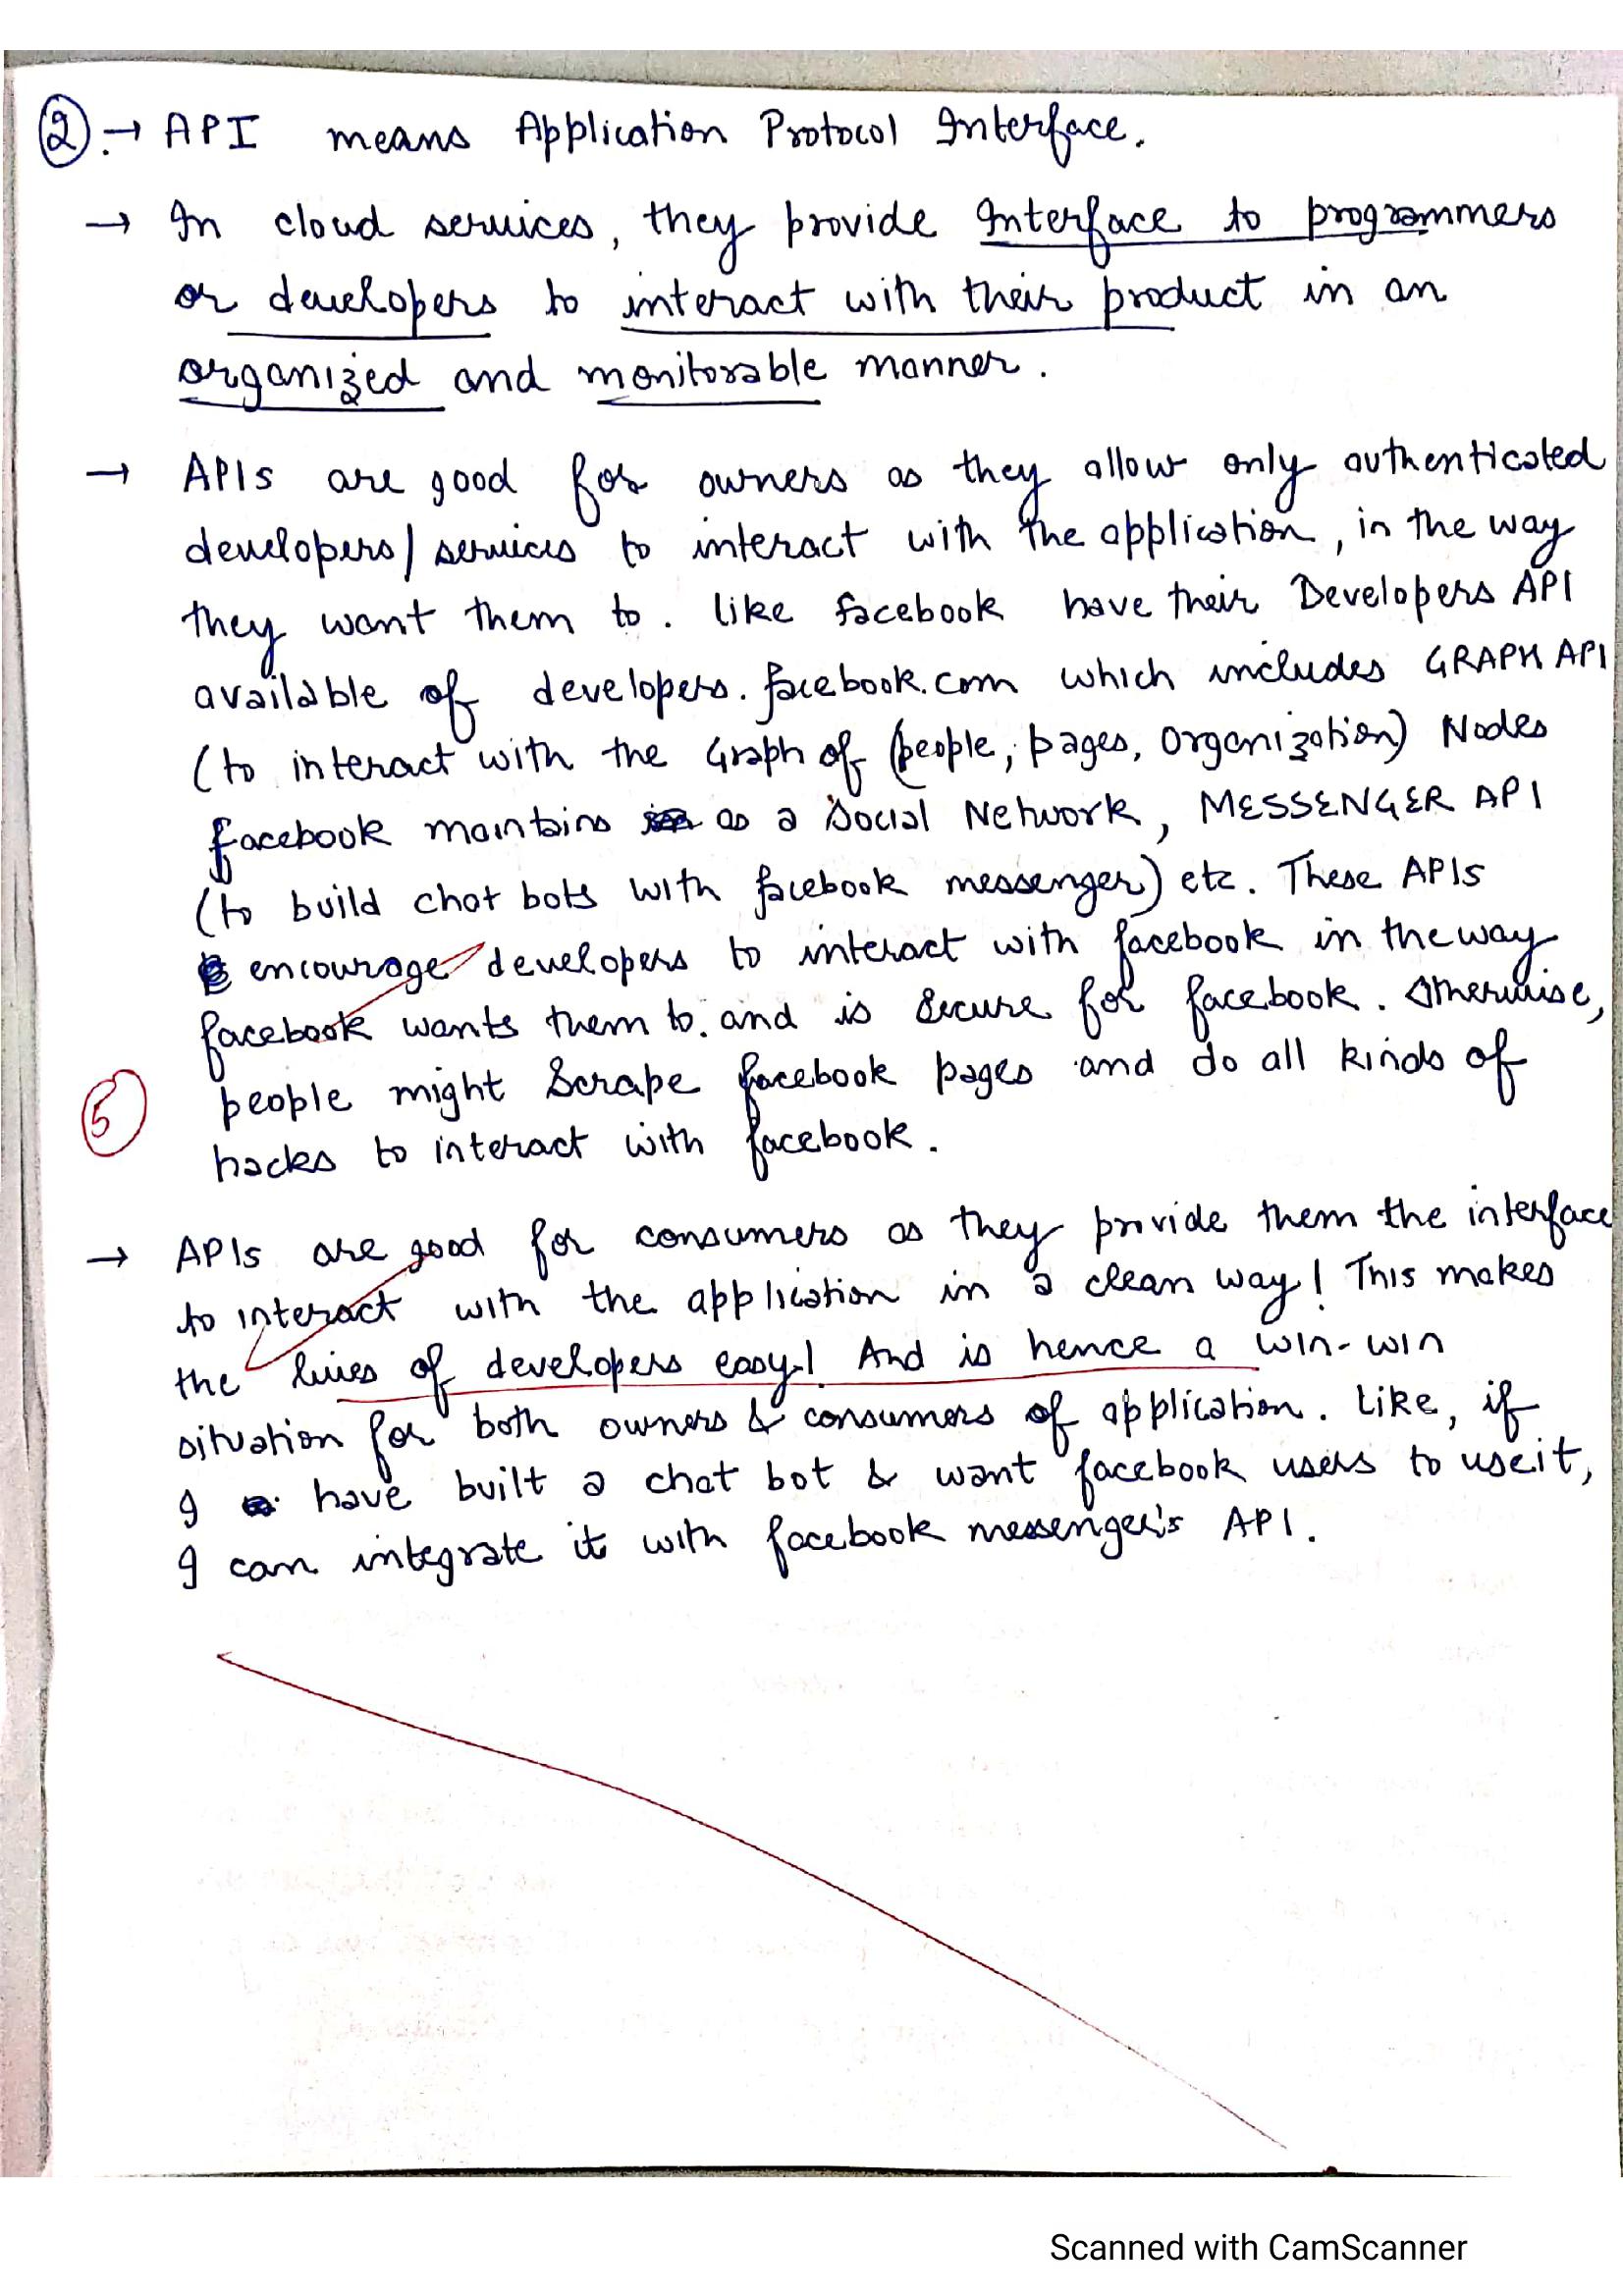 ② → API means Application Protocol Interface.
→ In cloud services, they provide Interface to programmers
or developers to interact with their product in an
organized and monitorable manner.
→ APIs are good for owners as they allow only authenticated
developers/services to interact with the application, in the way
they want them to. like facebook have their Developers API
available of developers.facebook.com which includes GRAPH API
(to interact with the Graph of (people, pages, organization) Nodes
facebook maintains as a Social Network, MESSENGER API
(to build chat bots with facebook messenger) etc. These APIs
encourage developers to interact with facebook in the way
facebook wants them to. and is secure for facebook. Otherwise,
people might Scrape facebook pages and do all kinds of
5
hacks to interact with facebook.
→ APIs are good for consumers as they provide them the interface
to interact with the application in a clean way! This makes
the lives of developers easy! And is hence a win-win
situation for both owners & consumers of application. Like, if
I have built a chat bot & want facebook users to use it,
I can integrate it with facebook messenger's API.
Scanned with CamScanner